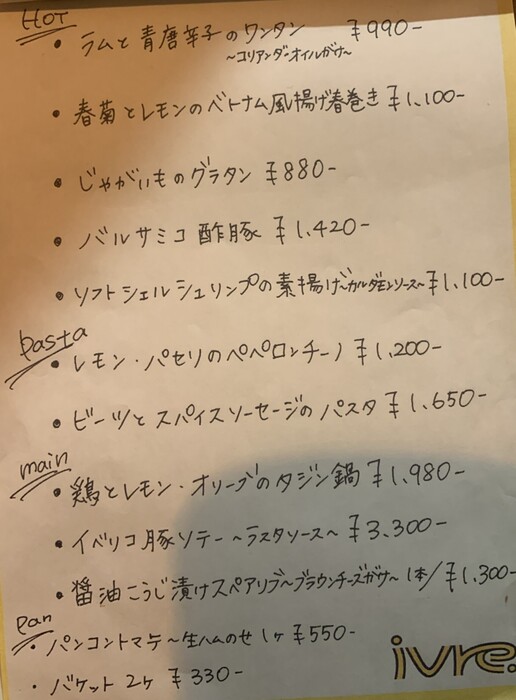 HOT
・ラムと青唐辛子のワンタン ¥990-
~コリアンダーオイルがけ~
・春菊とレモンのベトナム風揚げ春巻き ¥1,100-
・じゃがいものグラタン ¥880-
・バルサミコ酢豚 ¥1,420-
・ソフトシェルシュリンプの素揚げ~カルダモンソース~ ¥1,100-
pasta
・レモン・パセリのペペロンチーノ ¥1,200-
・ビーツとスパイスソーセージのパスタ ¥1,650-
main
・鶏とレモン・オリーブのタジン鍋 ¥1,980-
・イベリコ豚ソテー~ラスタソース~ ¥3,300-
・醤油こうじ漬けスペアリブ~ブラウンチーズがけ~ 1本/¥1,300-
pan
・パンコントマテ~生ハムのせ 1ヶ ¥550-
・バケット 2ヶ ¥330-
ivre.